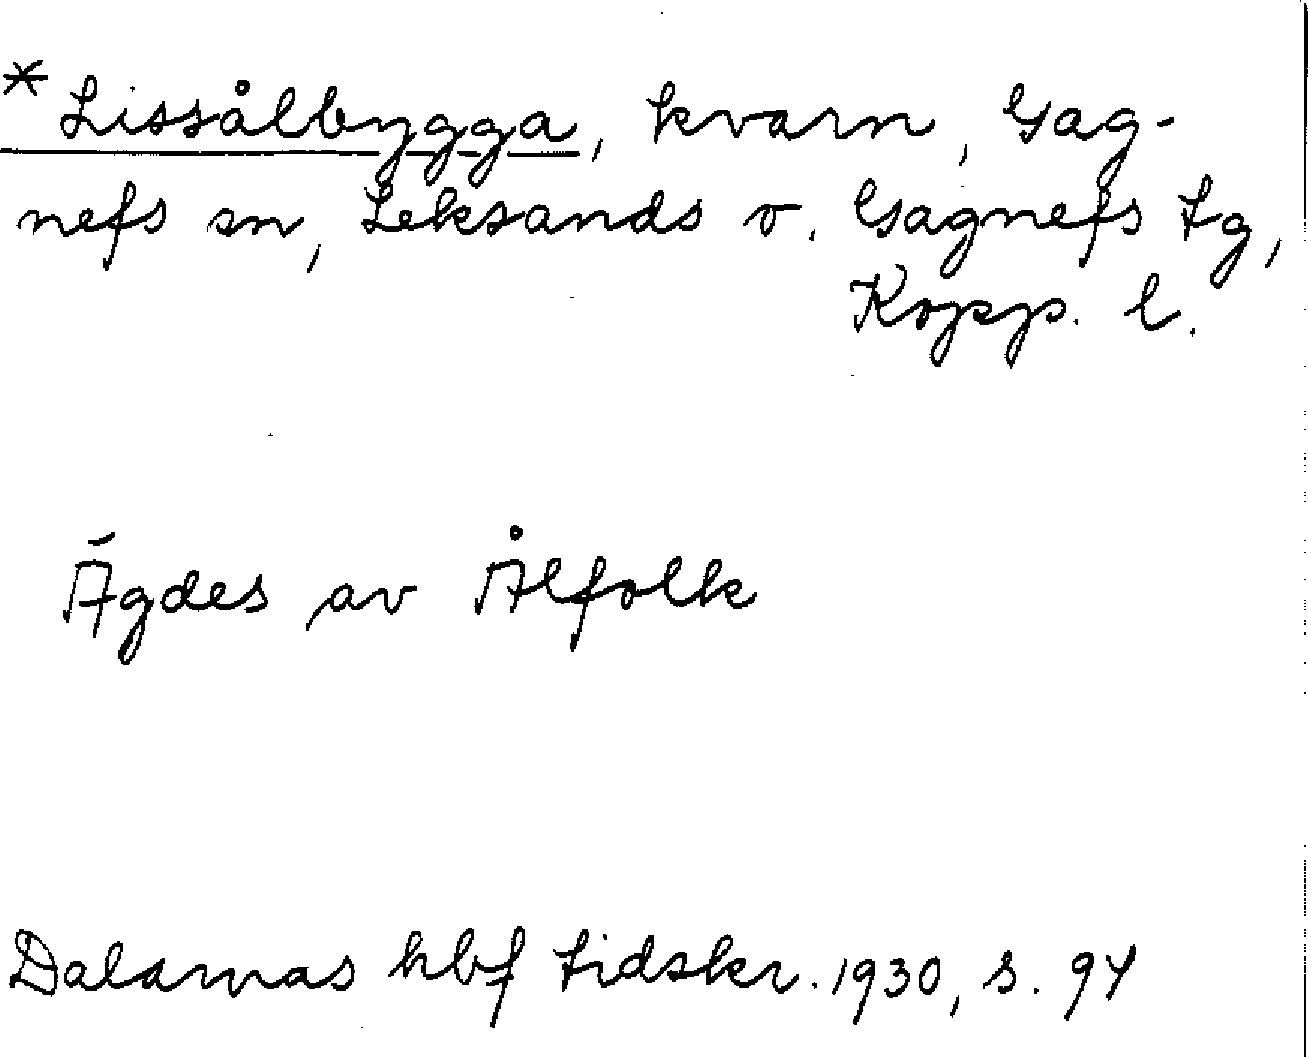 * Lissålbygga, kvarn, Gag-
nefs sn, Leksands o. Gagnefs tg,
Kopp. l.
Ägdes av Ålfolk
Dalarnas hbf tidskr. 1930, s. 94